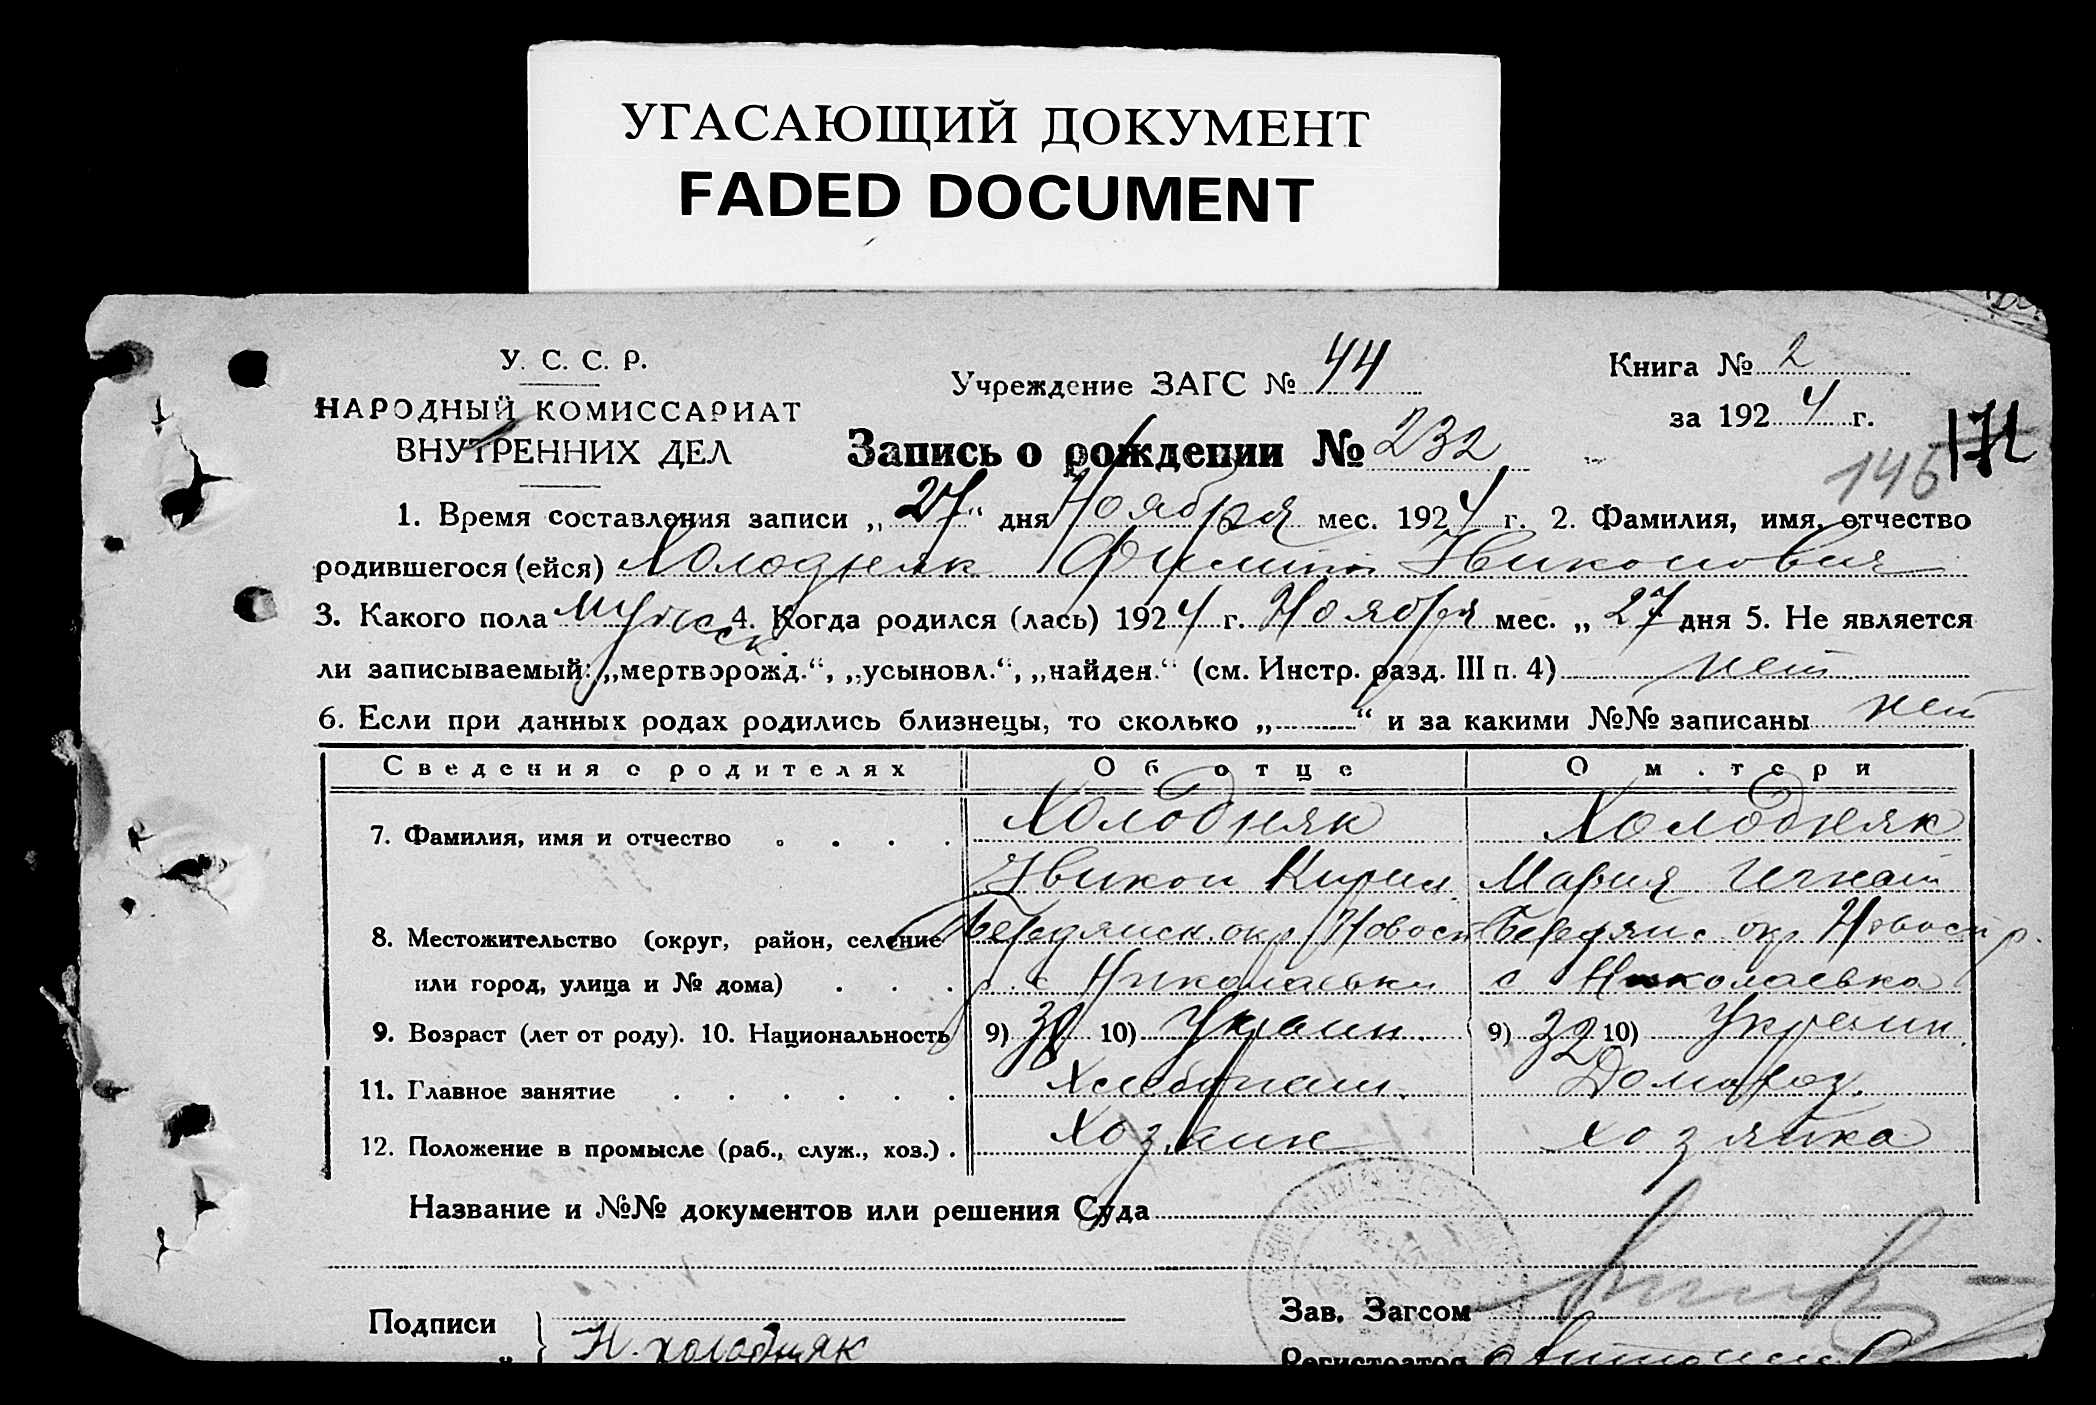 УГАСАЮЩИЙ ДОКУМЕНТ
FADED DOCUMENT
У. С. С. Р.
НАРОДНЫЙ КОМИССАРИАТ
ВНУТРЕННИХ ДЕЛ
Учреждение ЗАГС № 44
Книга № 2
за 1924 г.
Запись о рождении № 232
146
1. Время составления записи „27“ дня Ноября мес. 1924 г. 2. Фамилия, имя, отчество
родившегося (ейся) Холодняк Филип
3. Какого пола мужск. 4. Когда родился (лась) 1924 г. Ноября мес. „27 дня 5. Не является
ли записываемый: „мертворожд.“, „усыновл.“, „найден.“ (см. Инстр. разд. III п. 4) нет
6. Если при данных родах родились близнецы, то сколько „..........“ и за какими №№ записаны нет
Сведения о родителях Об отце О м.тери
7. Фамилия, имя и отчество . . . . Холодняк Холодняк
Кирил. Мария Игнат
8. Местожительство (округ, район, селение Бердянск. окр Новосп Бердянс окр Новосп р.
или город, улица и № дома) . . . р. с Николаевка с. Николаевка
9. Возраст (лет от роду). 10. Национальность 9) 38 10) Украин. 9) 32 10) Украин.
11. Главное занятие . . . . . . Хлебопаш. Домохоз.
12. Положение в промысле (раб., служ., хоз.) . Хозяин хозяйка
Название и №№ документов или решения Суда
Подписи
Зав. Загсом
Н. холодняк
Регистратор